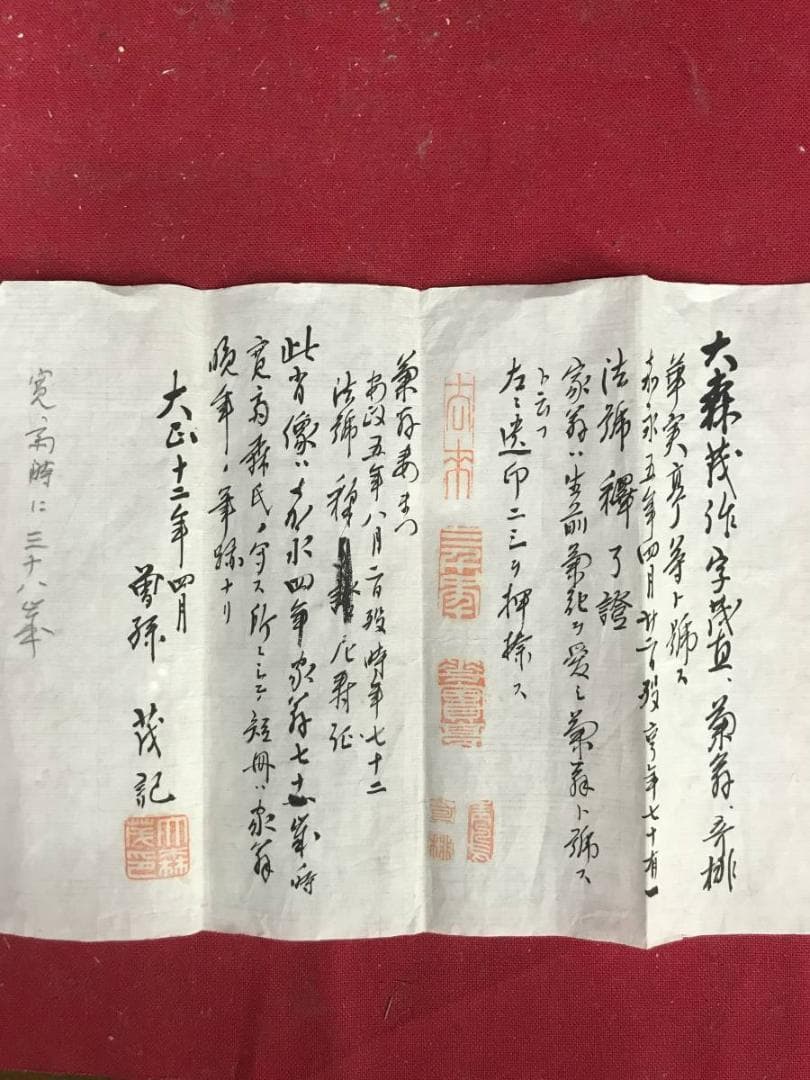 大森茂作字茂直、菊翁、
華実亭等ト號ス
嘉永五年四月廿二日歿享年七十有一
法號釋了證
家翁ハ生前菊花ヲ愛シ菊翁ト號ス
ト云フ
左ニ遺印二三ヲ押捺ス
菊翁妻まつ
安政五年八月二日歿時年七十二
法號釋尼寿征
此肖像ハ嘉永四年家翁七十歳時
寛斎森氏ノ写ス所ニシテ短冊ハ家翁
晩年ノ筆跡ナリ
大正十二年四月
曽孫 茂記
寛斎時ニ三十八歳